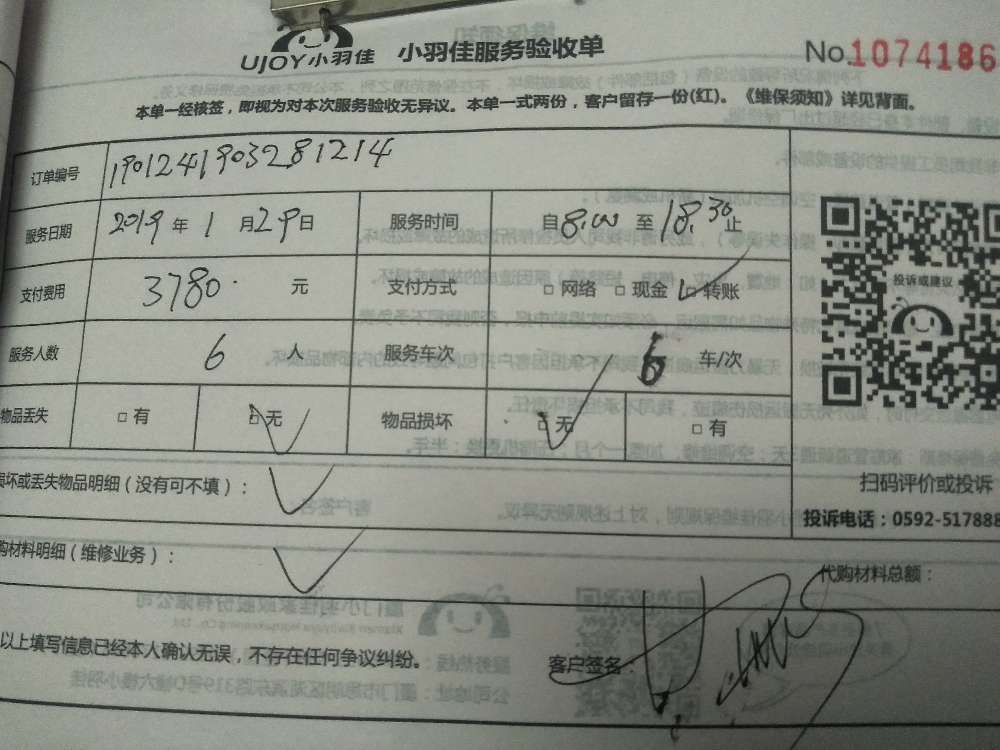 UJOY小羽佳 小羽佳服务验收单 No.1074186
本单一经核签，即视为对本次服务验收无异议。本单一式两份，客户留存一份(红)。《维保须知》详见背面。
订单编号 1901241903281214
服务日期 2019年1月29日 服务时间 自8:00至18:30止
支付费用 3780 元 支付方式 □网络 □现金 □转账
服务人数 6 人 服务车次 6 车/次
物品丢失 □有 □无 物品损坏 □无 □有
损坏或丢失物品明细（没有可不填）：
购材料明细（维修业务）：
代购材料总额：
以上填写信息已经本人确认无误，不存在任何争议纠纷。 客户签名：
投诉或建议
扫码评价或投诉
投诉电话：0592-517888